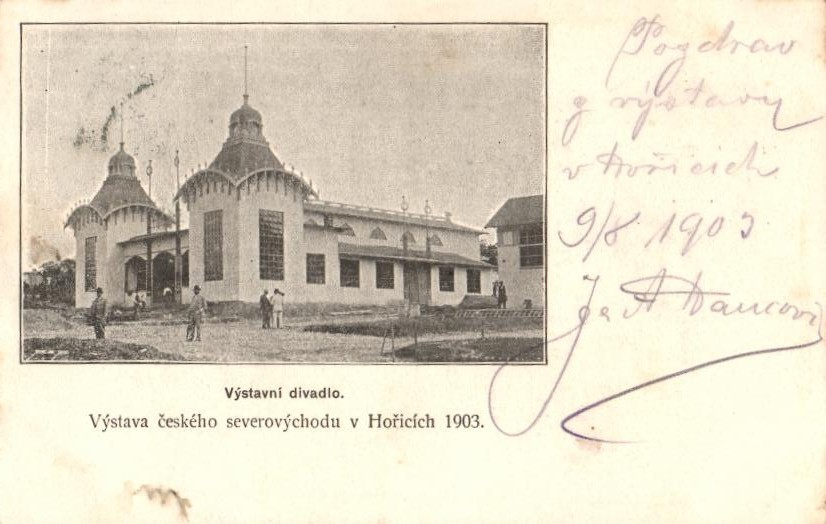 Výstavní divadlo.
Výstava českého severovýchodu v Hořicích 1903.
Pozdrav
z výstavy
v Hořicích
9/8 1903